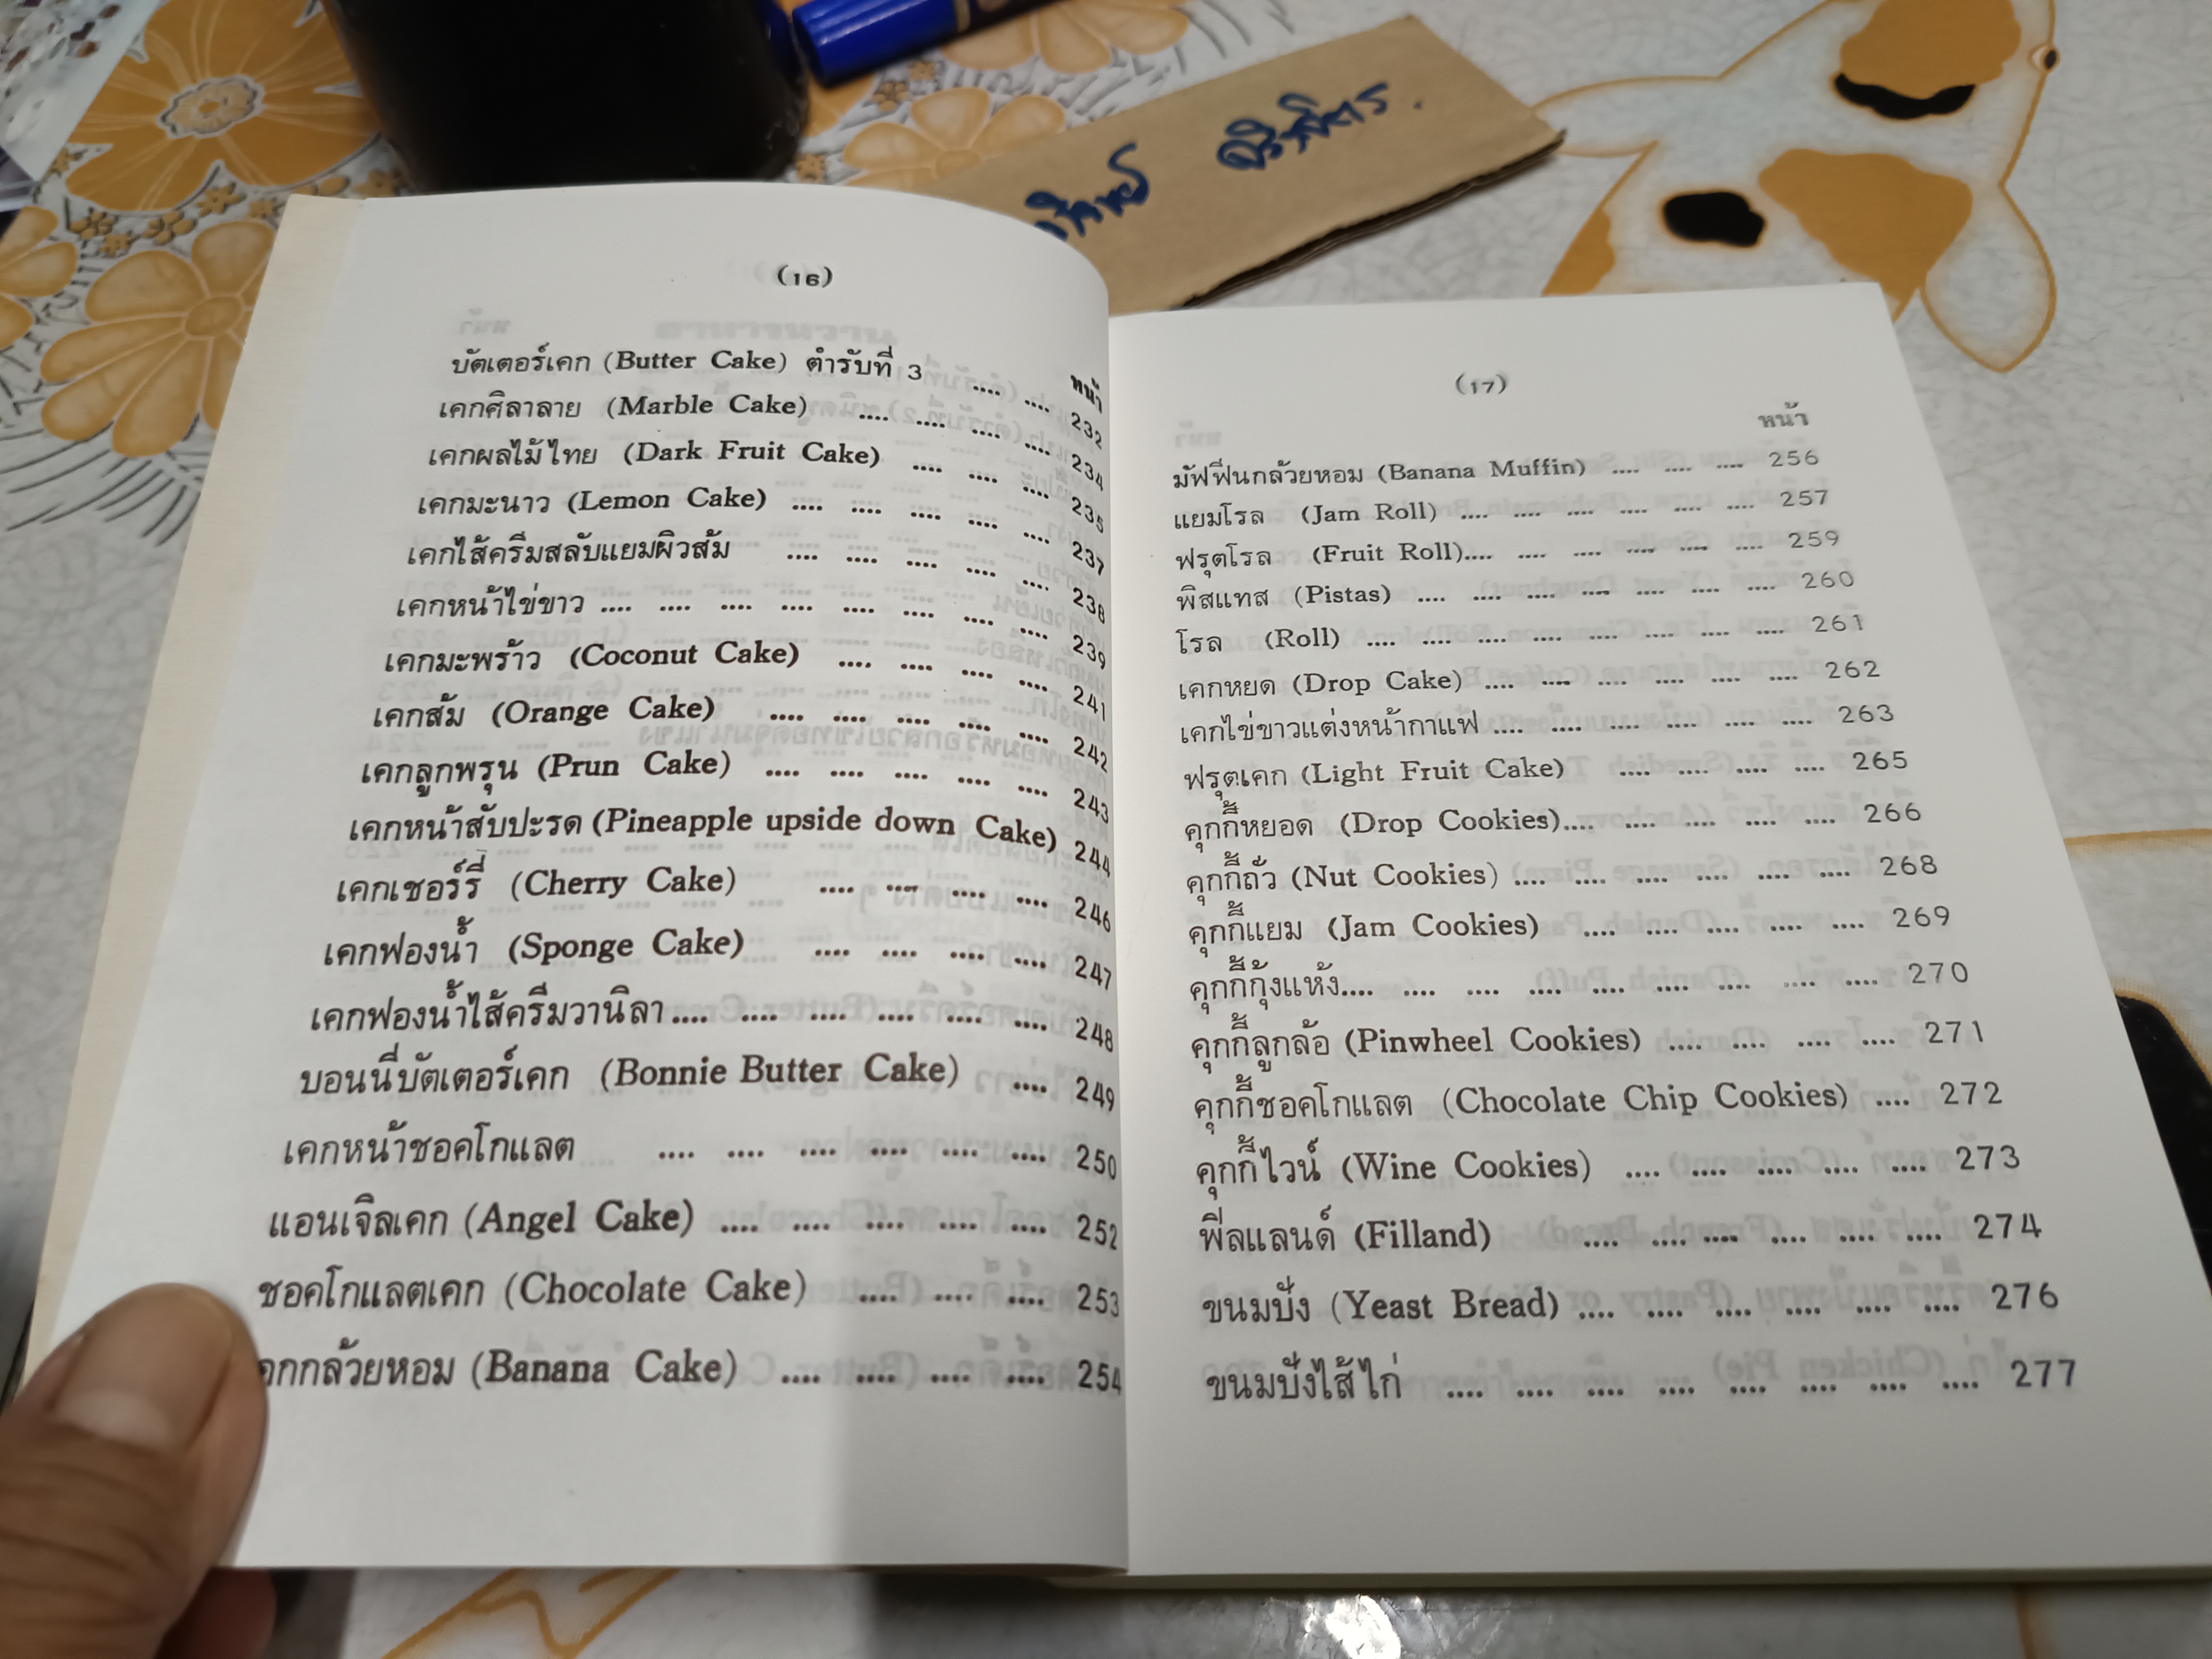 (16)
หน้า
บัตเตอร์เคก (Butter Cake) ตำรับที่ 3 .... .... 232
เคกศิลาลาย (Marble Cake) .... .... .... .... 234
เคกผลไม้ไทย (Dark Fruit Cake) .... .... .... 235
เคกมะนาว (Lemon Cake) .... .... .... .... .... 237
เคกไส้ครีมสลับแยมผิวส้ม .... .... .... .... .... 238
เคกหน้าไข่ขาว .... .... .... .... .... .... .... .... 239
เคกมะพร้าว (Coconut Cake) .... .... .... .... 241
เคกส้ม (Orange Cake) .... .... .... .... .... 242
เคกลูกพรุน (Prun Cake) .... .... .... .... .... 243
เคกหน้าสับปะรด (Pineapple upside down Cake) 244
เคกเชอร์รี่ (Cherry Cake) .... .... .... .... 246
เคกฟองน้ำ (Sponge Cake) .... .... .... .... 247
เคกฟองน้ำไส้ครีมวานิลา .... .... .... .... .... .... 248
บอนนี่บัตเตอร์เคก (Bonnie Butter Cake) .... 249
เคกหน้าชอคโกแลต .... .... .... .... .... .... 250
แอนเจิลเคก (Angel Cake) .... .... .... .... .... 252
ชอคโกแลตเคก (Chocolate Cake) .... .... .... 253
(Banana Cake) .... .... .... .... 254
(17)
หน้า
มัฟฟีนกล้วยหอม (Banana Muffin) .... .... .... 256
แยมโรล (Jam Roll) .... .... .... .... .... .... 257
ฟรุตโรล (Fruit Roll).... .... .... .... .... .... 259
พิสแทส (Pistas) .... .... .... .... .... .... .... 260
โรล (Roll) .... .... .... .... .... .... .... .... 261
เคกหยด (Drop Cake) .... .... .... .... .... .... 262
เคกไข่ขาวแต่งหน้ากาแฟ .... .... .... .... .... .... 263
ฟรุตเคก (Light Fruit Cake) .... .... .... .... 265
คุกกี้หยอด (Drop Cookies).... .... .... .... .... 266
คุกกี้ถั่ว (Nut Cookies) .... .... .... .... .... .... 268
คุกกี้แยม (Jam Cookies) .... .... .... .... .... 269
คุกกี้กุ้งแห้ง.... .... .... .... .... .... .... .... .... 270
คุกกี้ลูกล้อ (Pinwheel Cookies) .... .... .... .... 271
คุกกี้ชอคโกแลต (Chocolate Chip Cookies) .... 272
คุกกี้ไวน์ (Wine Cookies) .... .... .... .... .... 273
ฟิลแลนด์ (Filland) .... .... .... .... .... .... 274
ขนมปัง (Yeast Bread) .... .... .... .... .... .... 276
ขนมปังไส้ไก่ .... .... .... .... .... .... .... .... 277